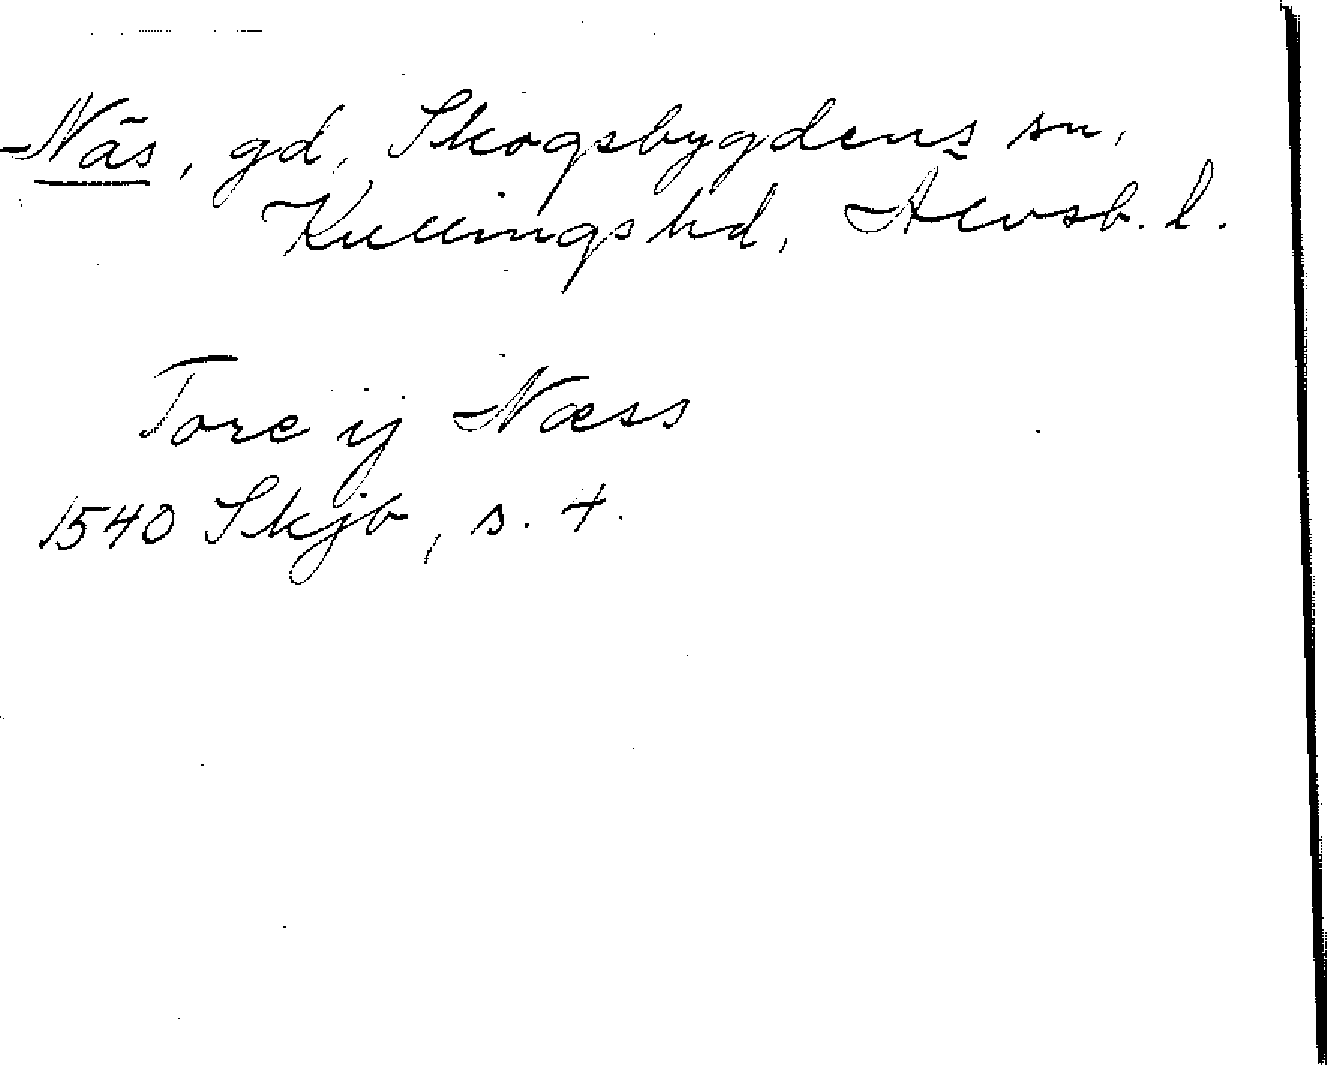 Näs, gd, Skogsbygdens sn,
Kullings hd, Älvsb. l.
Tore ij Næss
1540 Skjb, s. 4.